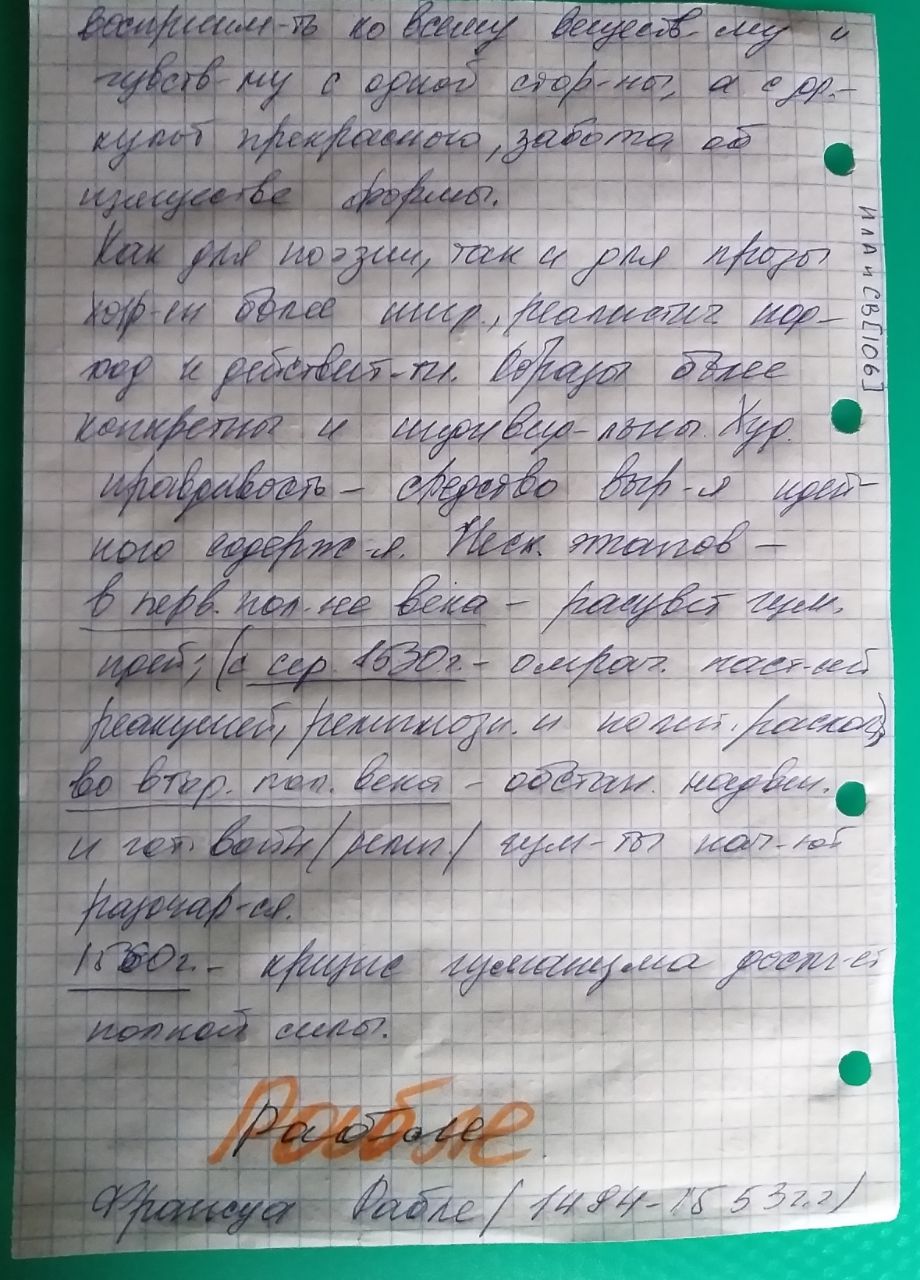 восприим-ть ко всему веществ-му и
чувств-му с одной стор-ны, а с др.-
культ прекрасного, забота об
изяществе формы.
Как для поэзии, так и для прозы
хар-ен более шир., реалистич под-
ход к действит-ти. Образы более
конкретны и индивид-льны. Худ.
правдивость – средство выр-я идей-
ного содерж-я. Неск. этапов –
в перв. пол-не века – расцвет гум.
идей; (с сер. 1530г. – омрач. наст-ей
реакцией, религиозн. и полит. раскол)
во втор. пол. века – обстан. надвиг.
и гот. войн (религ.) гум-ты нач-ют
разочар-ся.
1560г. – кризис гуманизма дости-ет
полной силы.
Рабле
Франсуа Рабле (1494-1553г.г)
ИЛА и СВ [106]